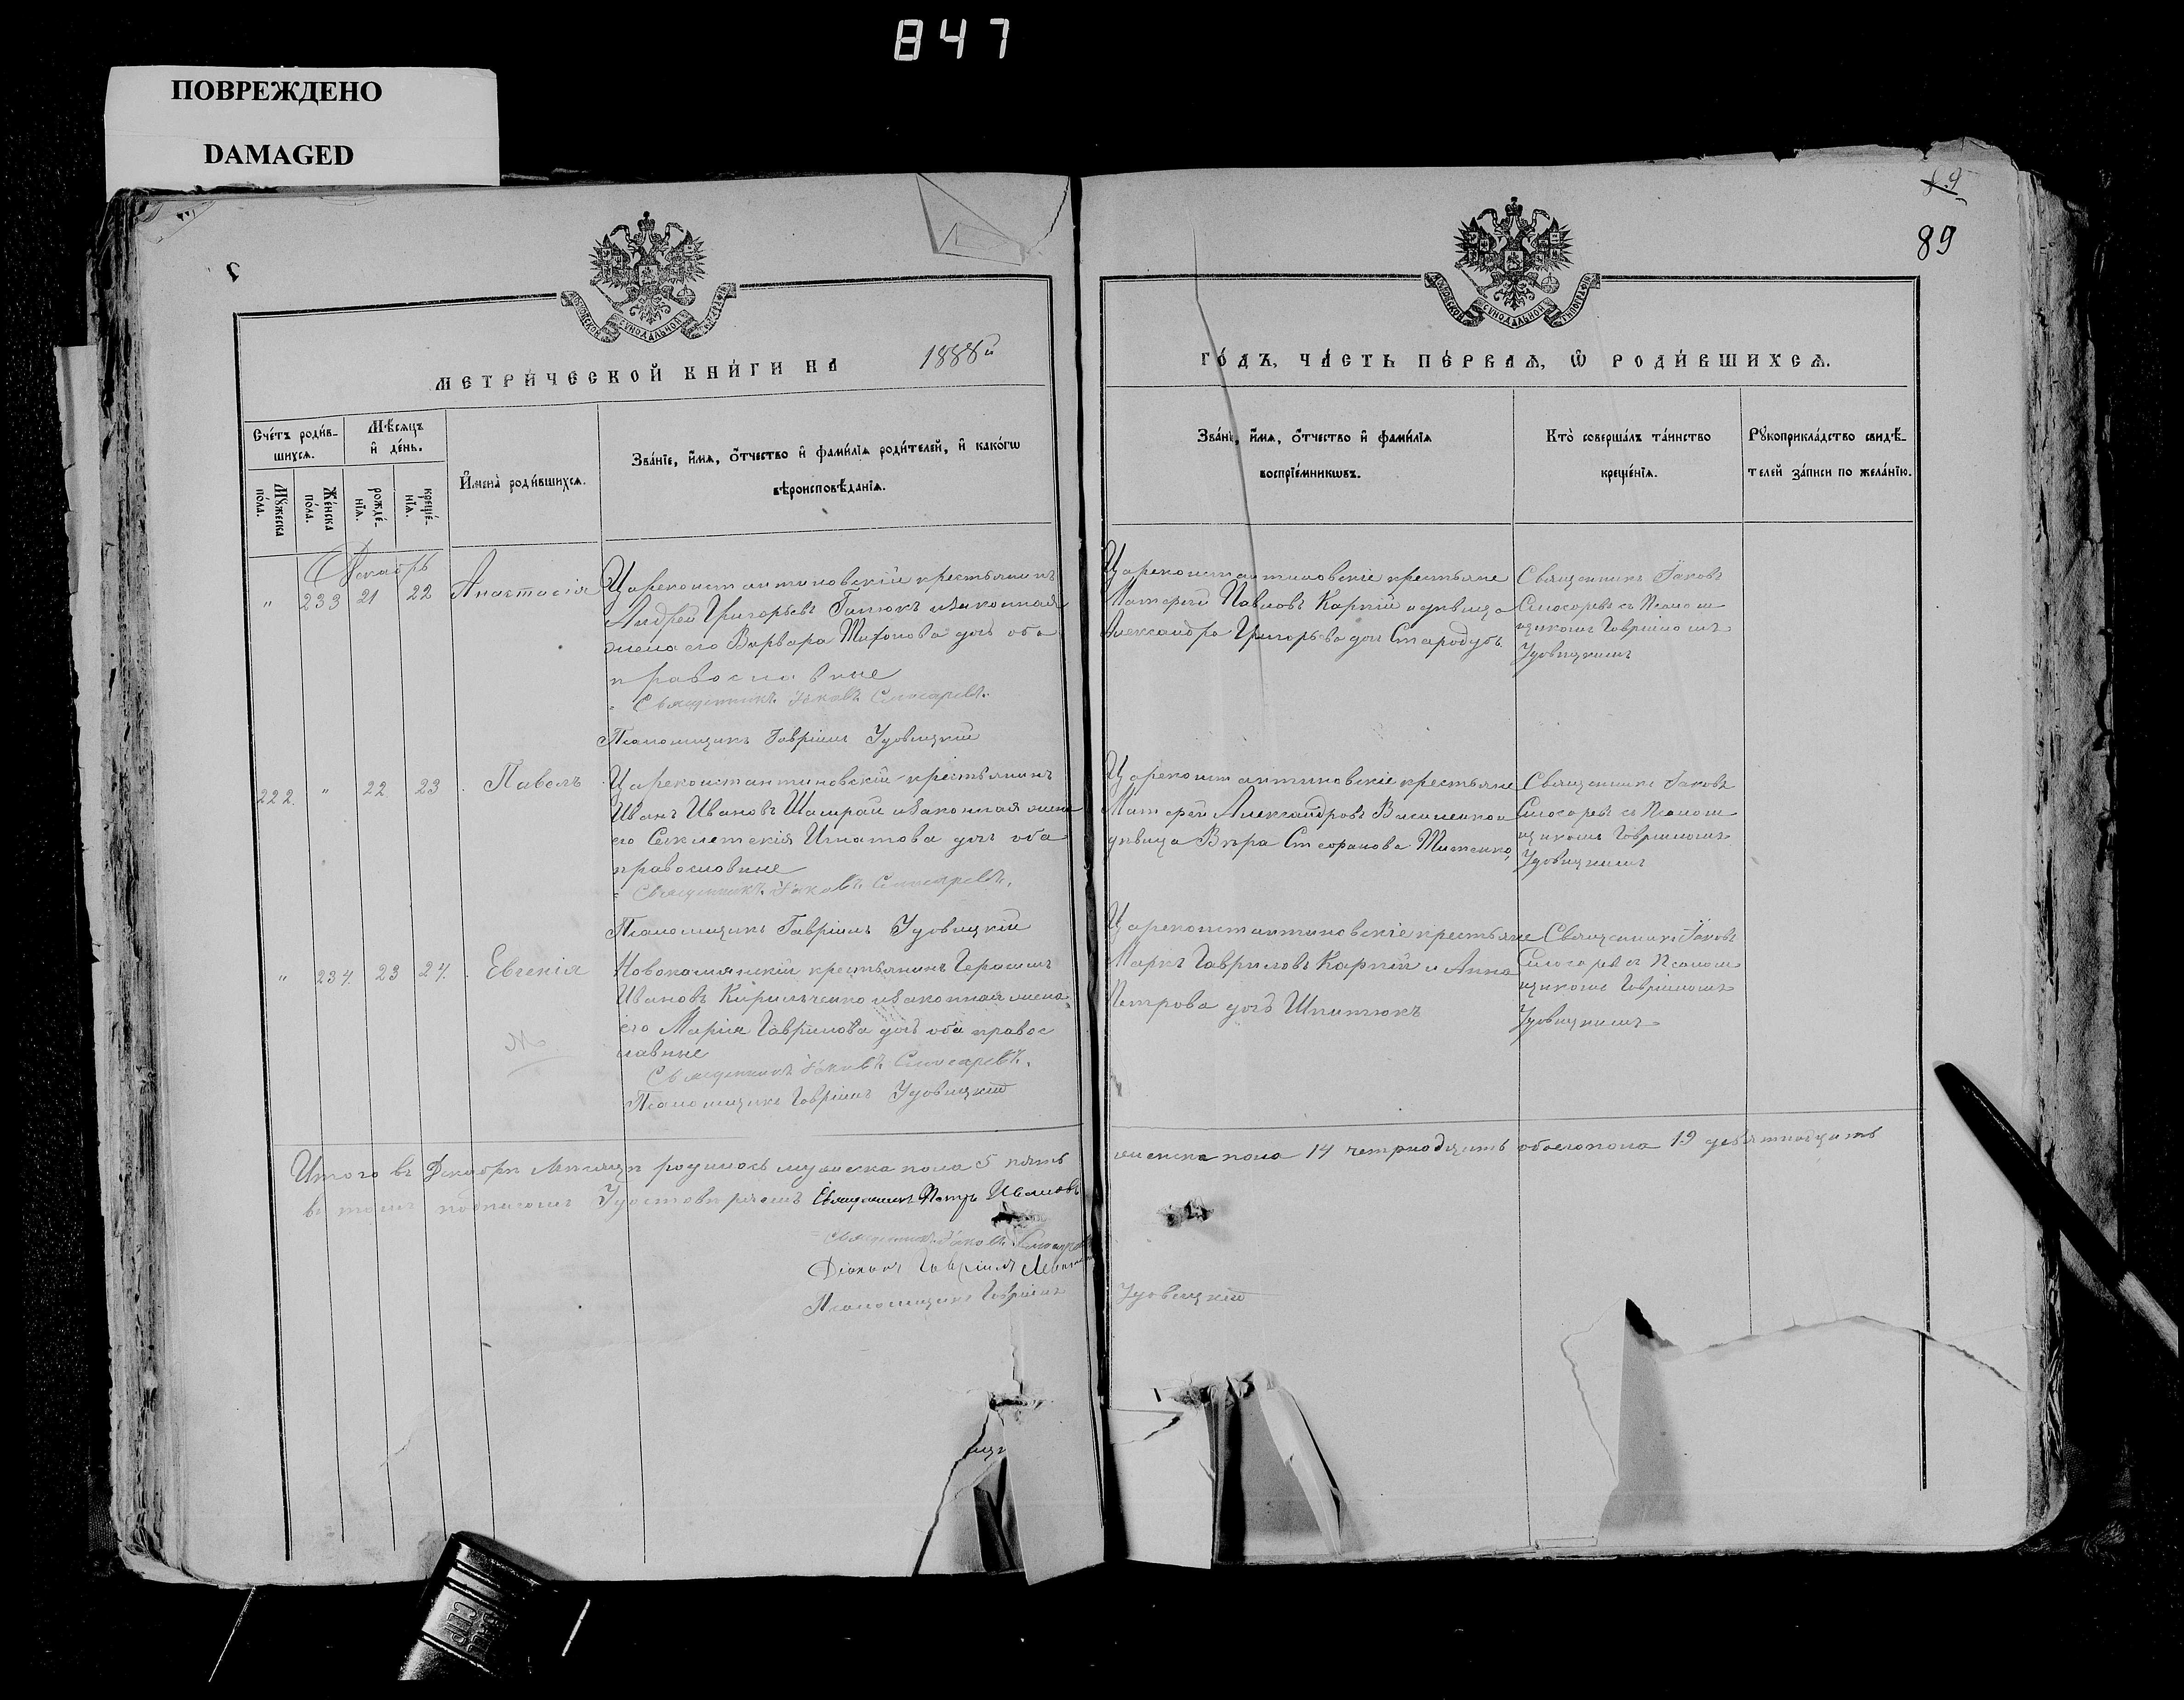 847
ПОВРЕЖДЕНО
DAMAGED
89
МОСКОВСКОЙ СѴНОДАЛЬНОЙ ТИПОГРАФІИ
МОСКОВСКОЙ СѴНОДАЛЬНОЙ ТИПОГРАФІИ
МЕТРИ́ЧЕСКОЙ КНИ́ГИ НА 1888й
ГО́ДЪ, ЧА́СТЬ ПЕ́РВАѦ, Ѡ҆ РОДИ́ВШИХСѦ.
Сче́тъ роди́в-
шихсѧ.
Мꙋ́жеска
по́ла.
Же́нска
по́ла.
Мѣ́сѧцъ
и҆ де́нь.
рожде́-
нїѧ.
креще́-
нїѧ.
И҆мена̀ роди́вшихсѧ.
Зва́нїе, и҆́мѧ, ѻ҆́тчество и҆ фамилїѧ роди́телей, и҆ како́гѡ
вѣроисповѣ́данїѧ.
Зва́нїе, и҆́мѧ, ѻ҆́тчество и҆ фами́лїѧ
воспрїе́мникѡвъ.
Кто̀ соверша́лъ та́инство
креще́нїѧ.
Рꙋкоприкла́дство свидѣ́-
телей за́писи по жела́нїю.
Декабрь
" 233 21 22 Анастасія
Цареконстантиновскій крестьянинъ
Андрей Григорьевъ Гапюкъ и законная
жена его Варвара Тихонова дочь оба
православные
Священникъ Іаковъ Слюсаревъ.
Псаломщикъ Гавріилъ Удовицкій
Цареконстантиновскіе крестьяне
Матфей Павловъ Карпій и дѣвица
Александра Григорьева доч Стародубъ
Священникъ Іаковъ
Слюсаревъ съ Псалом
щикомъ Гавріиломъ
Удовицкимъ
222. " 22 23 Павелъ
Цареконстантиновскій крестьянинъ
Иванъ Ивановъ Шамрай и законная жена
его Секлетекія Игнатова дочь оба
православные
Священникъ Іаковъ Слюсаревъ.
Псаломщикъ Гавріилъ Удовицкій
Цареконстантиновскіе крестьяне
Матфей Александровъ Василенко и
дѣвица Вѣра Стефанова Титенко,
Священникъ Іаковъ
Слюсаревъ съ Псалом
щикомъ Гавріиломъ
Удовицкимъ
" 234. 23 24. Евгенія
Новокамянскій крестьянинъ Герасимъ
Ивановъ Кирильченко и законная жена
его Марія Гаврилова дочь оба правос
лавные
Священникъ Іаковъ Слюсаревъ.
Псаломщикъ Гавріилъ Удовицкій
Цареконстантиновскіе крестьяне
Маркъ Гавриловъ Карпій и Анна
Петрова дочь Шпитюкъ
Священникъ Іаковъ
Слюсаревъ съ Псалом
щикомъ Гавріиломъ
Удовицкимъ
Итого въ Декабрѣ Мѣсяцѣ родилось мужеска пола 5 пять
женска пола 14 четрнодцять обоего пола 19 девятнадцать
въ томъ подписомъ Удостовѣряемъ Священникъ Петръ Ивановъ
Священникъ Іаковъ Слюсаревъ
Діаконъ Гавріилъ
Псаломщикъ Гавріилъ Удовицкій